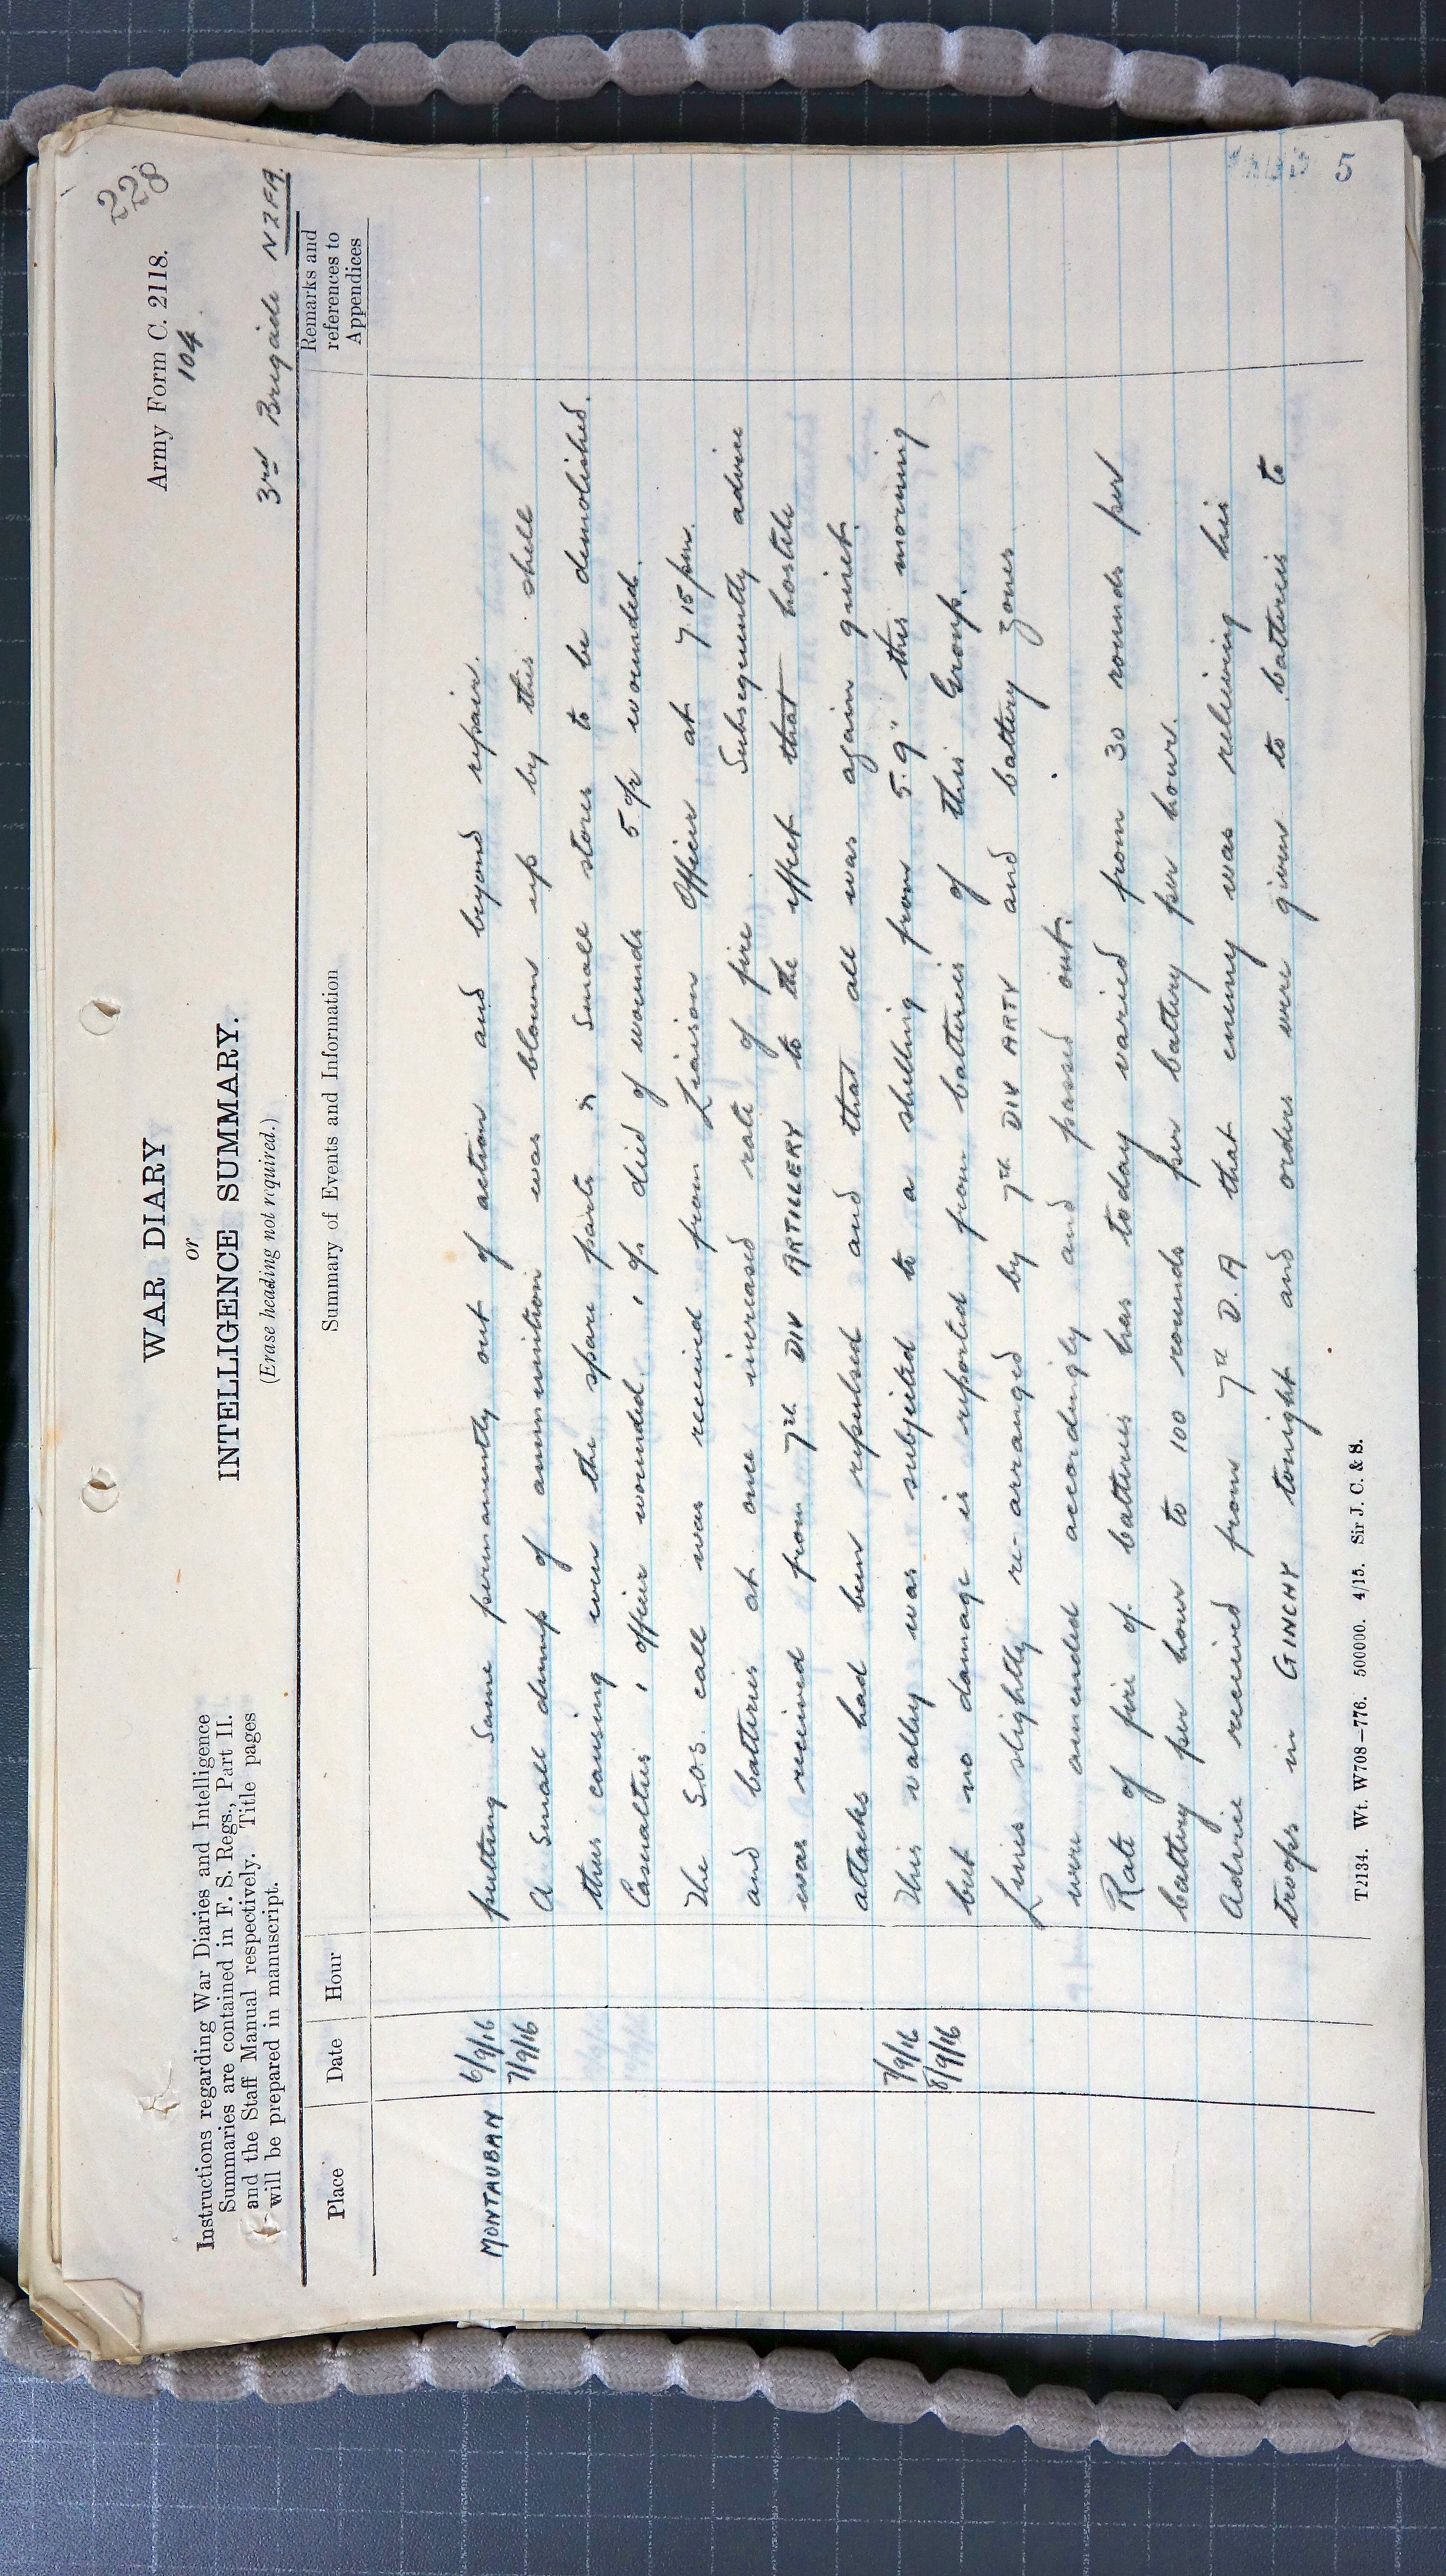 228
Army Form C. 2118.
104.
WAR DIARY
or
INTELLIGENCE SUMMARY.
(Erase heading not required.)
3rd Brigade NZFA.
Instructions regarding War Diaries and Intelligence
Summaries are contained in F. S. Regs., Part II.
and the Staff Manual respectively. Title pages
will be prepared in manuscript.
Place Date Hour Summary of Events and Information Remarks and
references to
Appendices
MONTAUBAN 6/9/16 putting same permanently out of action and beyond repair.
7/9/16 A small dump of ammunition was blown up by this shell
thus causing even the spare parts & small stores to be demolished.
Casualties 1 officer wounded. 1 o/r died of wounds 5 o/r wounded.
The S.O.S. call was received from Liaison Officer at 7.15 pm.
and batteries at once increased rate of fire. Subsequently advice
was received from 7TH DIV ARTILLERY to the effect that hostile
attacks had been repulsed and that all was again quiet.
7/9/16 This valley was subjected to a shelling from 5.9" this morning
8/9/16 but no damage is reported from batteries of this Group.
Lines slightly re-arranged by 7TH DIV ARTY and battery zones
were amended accordingly and passed out.
Rate of fire of batteries has today varied from 30 rounds per
battery per hour to 100 rounds per battery per hour.
Advice received from 7TH D.A that enemy was relieving his
troops in GINCHY tonight and orders were given to batteries to
T2134. Wt. W708—776. 500000. 4/15. Sir J. C. & S.
5